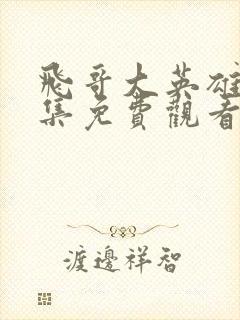 飛哥大英雄
集免費觀看
渡邊祥智